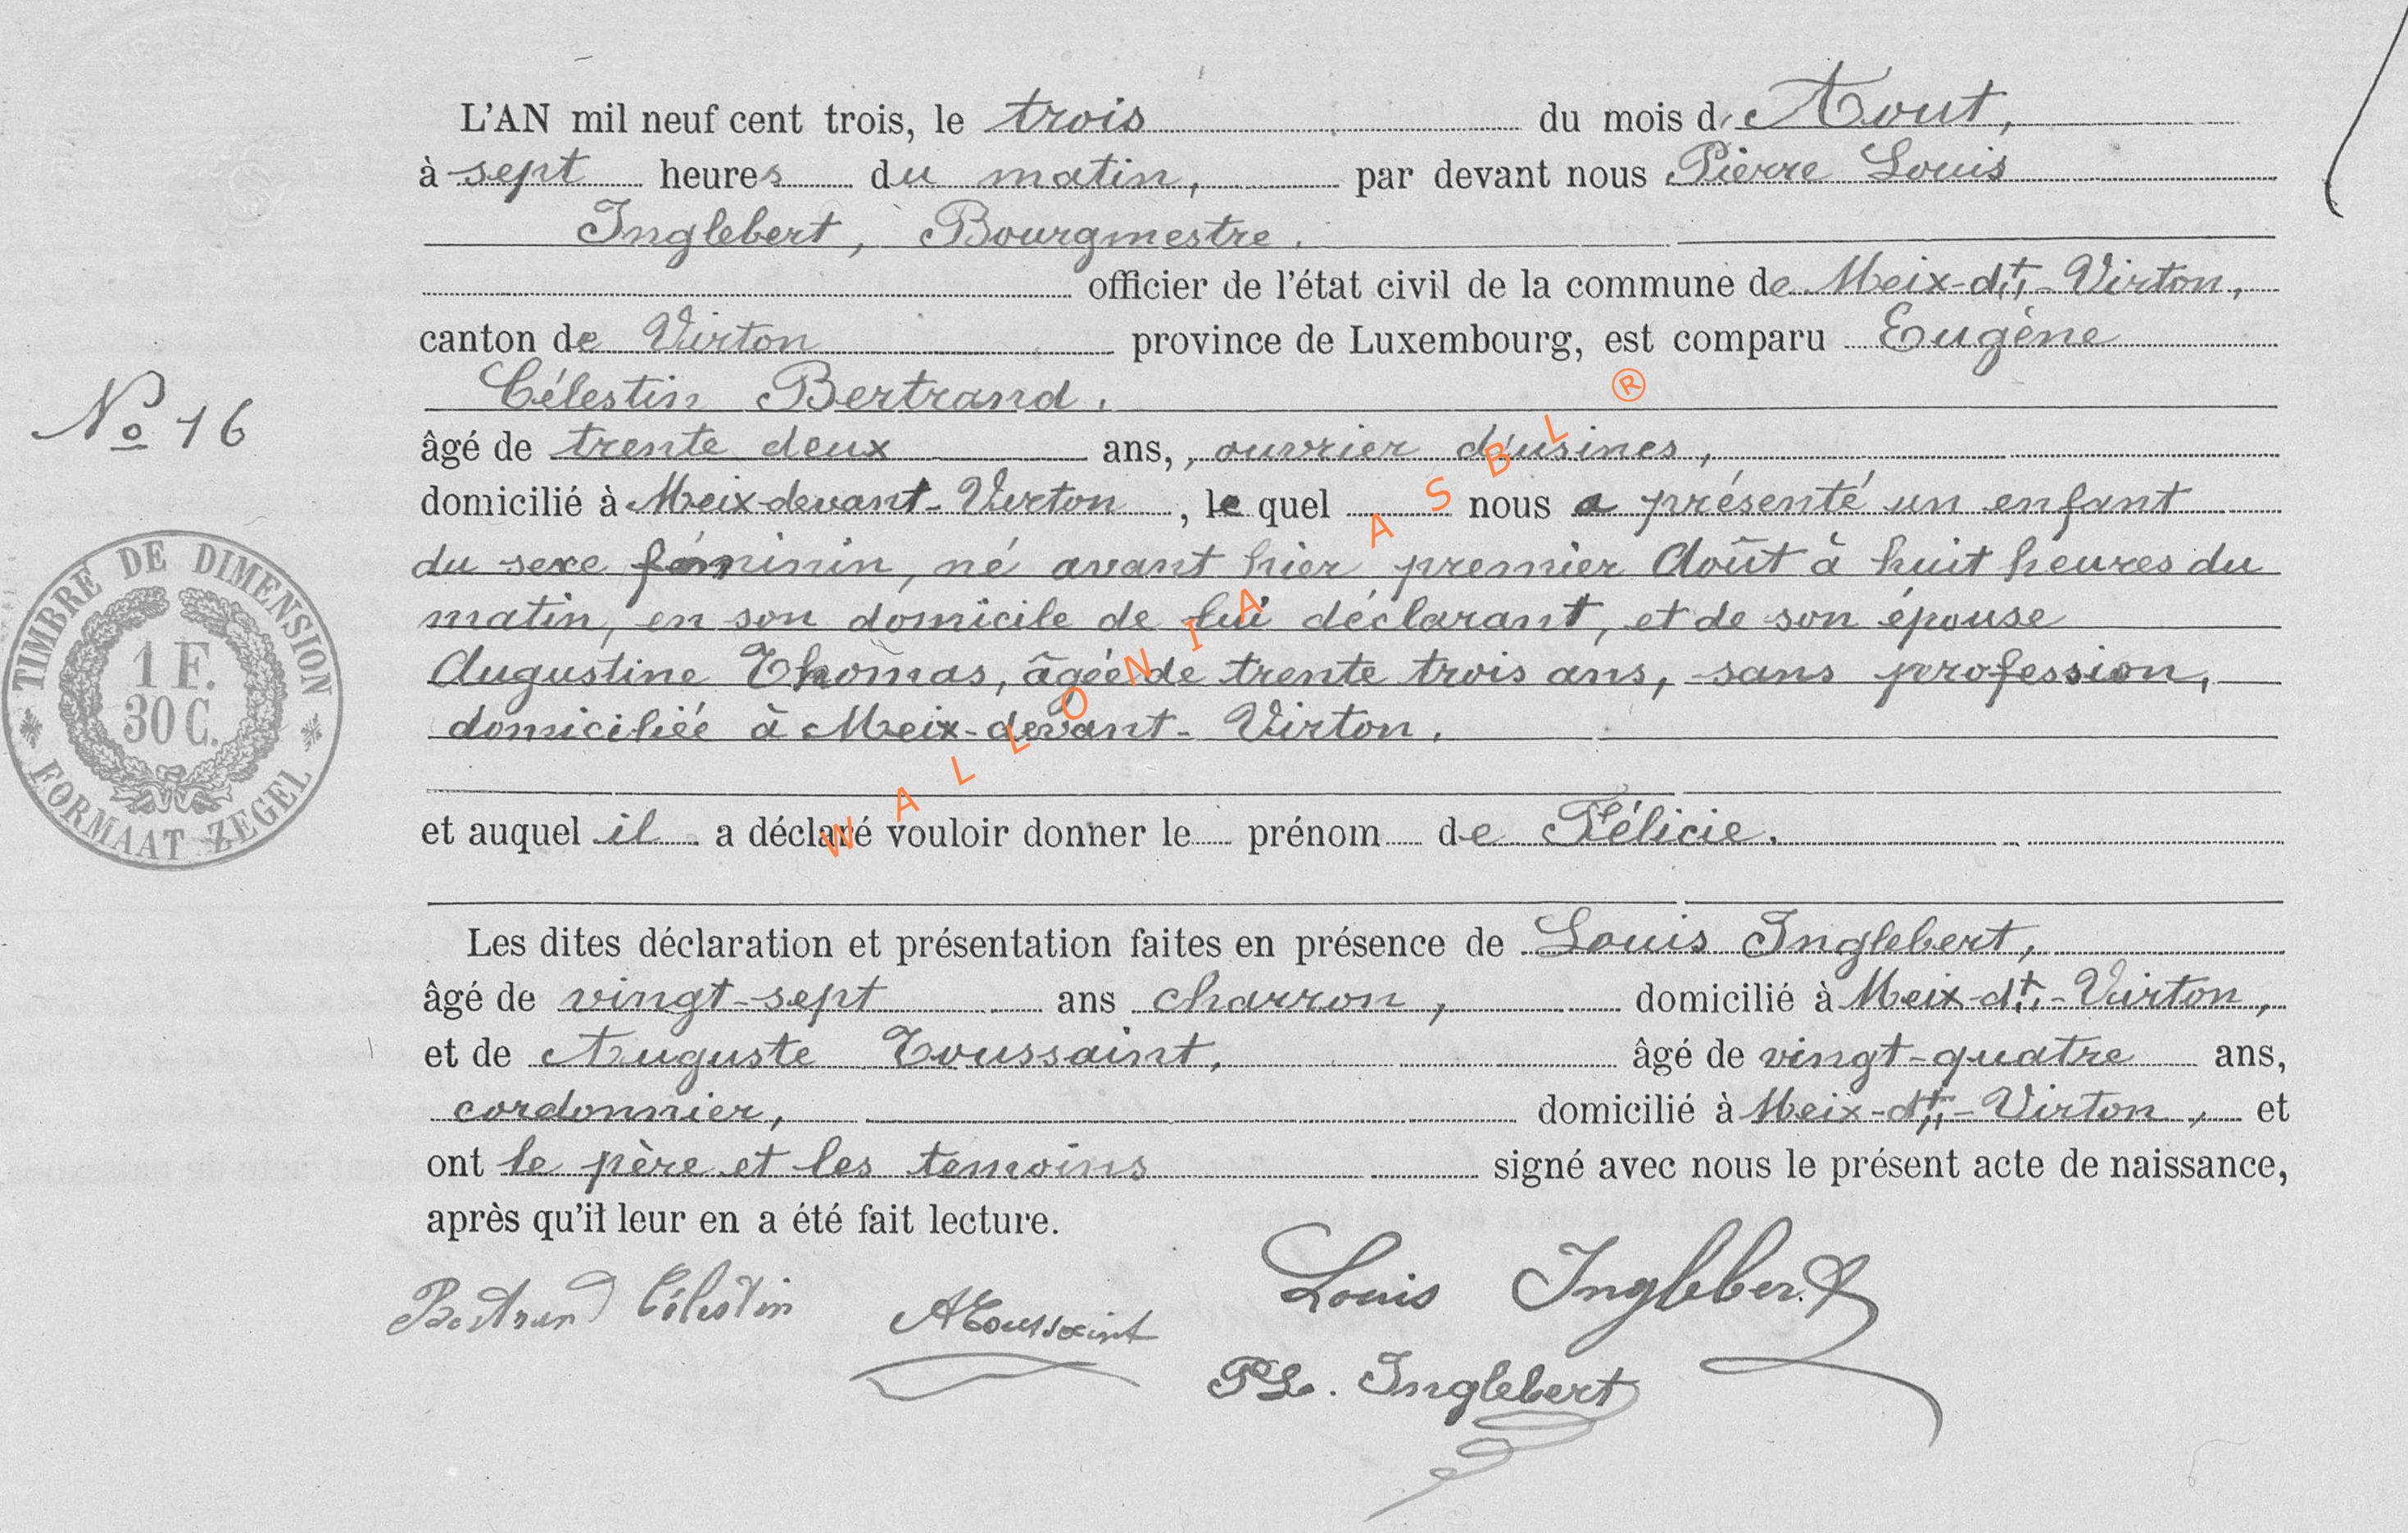 L'AN mil neuf cent trois, le trois du mois d'Aout,
à sept heures du matin, par devant nous Pierre Louis
Inglebert, Bourgmestre.
officier de l'état civil de la commune de Meix-dt-Virton,
canton de Virton province de Luxembourg, est comparu Eugène
Célestin Bertrand.
No 16
âgé de trente deux ans, ouvrier d'usines,
domicilié à Meix-devant-Virton, le quel nous a présenté un enfant
du sexe féminin, né avant hier premier Août à huit heures du
matin, en son domicile de lui déclarant, et de son épouse
Augustine Thomas, âgée de trente trois ans, sans profession,
domiciliée à Meix-devant-Virton.
et auquel il a déclaré vouloir donner le prénom de Félicie.
Les dites déclaration et présentation faites en présence de Louis Inglebert,
âgé de vingt-sept ans charron, domicilié à Meix-dt-Virton,
et de Auguste Toussaint, âgé de vingt-quatre ans,
cordonnier, domicilié à Meix-dt-Virton, et
ont le père et les temoins signé avec nous le présent acte de naissance,
après qu'il leur en a été fait lecture.
Bertrand Célestin
AToussaint
Louis Inglebert
PL. Inglebert
TIMBRE DE DIMENSION
1 F.
30 C.
FORMAAT ZEGEL
WALLONIA ASBL ®